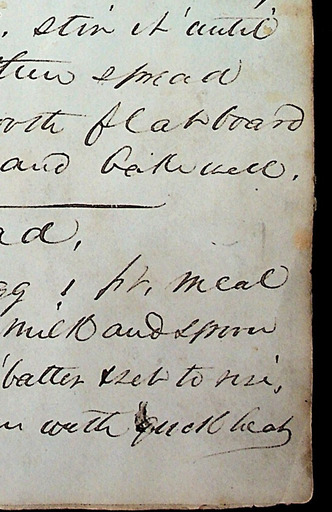 , stir it until
then spread
ooth flat board
and bake well.
ad,
gg 1 pt, meal
milk and spoon
batter & set to rise,
with quick heat